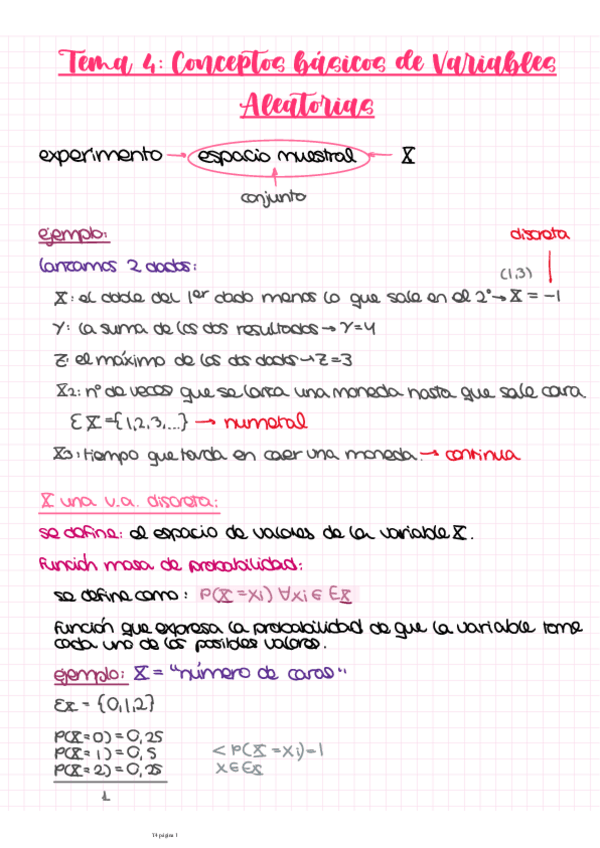 Tema 4: Conceptos básicos de Variables
Aleatorias
experimento → espacio muestral ← X
conjunto
ejemplo:
discreta
lanzamos 2 dados:
(1,3)
X: el doble del 1er dado menos lo que sale en el 2º → X = -1
Y: la suma de los dos resultados → Y=4
Z: el máximo de los dos dados → Z=3
X2: nº de veces que se lanza una moneda hasta que sale cara
EX={1,2,3,...} → numeral
X3: tiempo que tarda en caer una moneda. → continua
X una v.a. discreta:
se define: el espacio de valores de la variable X.
Función masa de probabilidad:
se define como: P(X=xi) ∀xi ∈ Ex
Función que expresa la probabilidad de que la variable tome
cada uno de los posibles valores.
ejemplo: X = "número de caras"
Ex = {0,1,2}
P(X=0)=0,25
P(X=1)=0,5
< P(X=xi)=1
P(X=2)=0,25
x∈Ex
1
T4 página 1